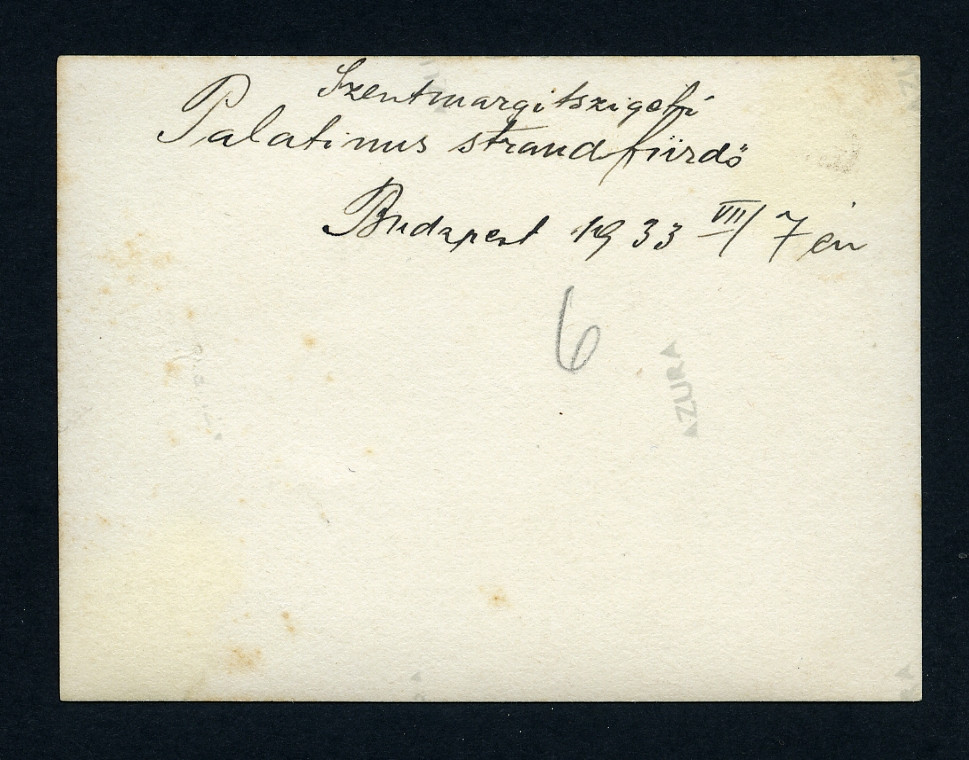 Szentmargitszigeti
Palatinus strandfürdő
Budapest 1933 VIII/7 én
6
AZURA